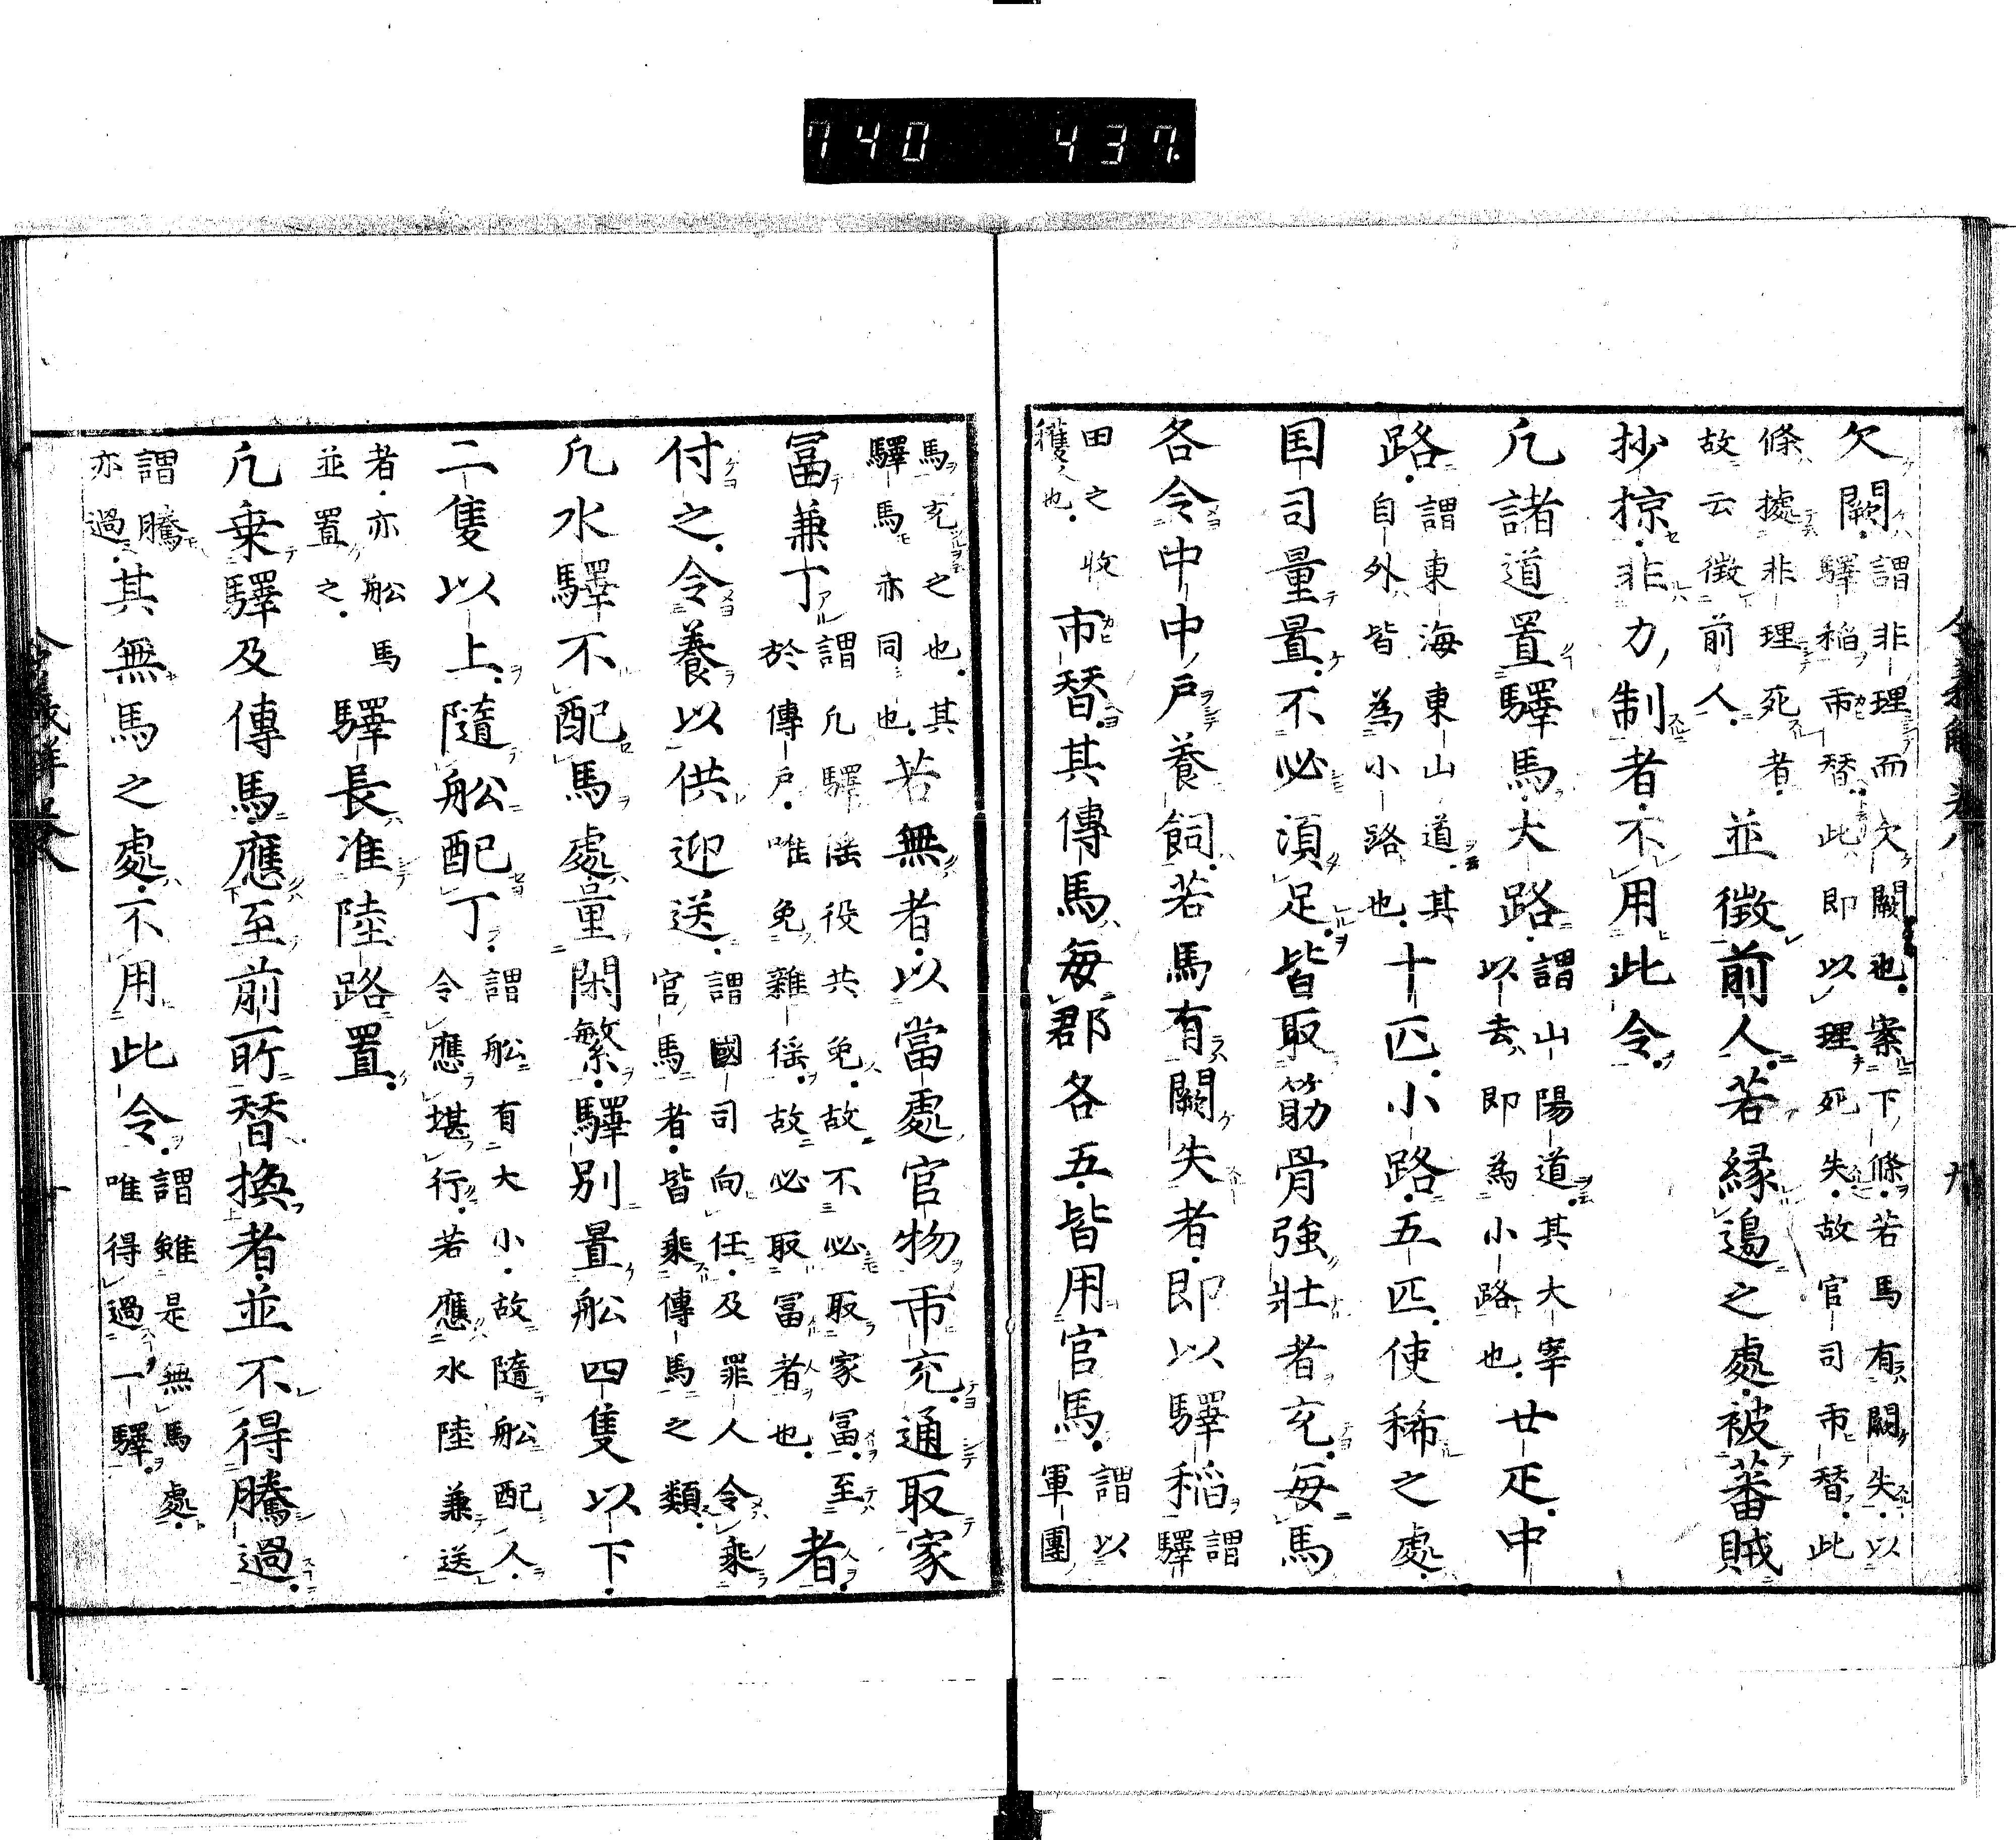 740 437
欠闕。謂非理而欠闕也。案下條。若馬有闕失。以
驛稲市替。此即以理死失。故官司市替。此
條據非理死者。
故云徴前人。並徴前人。若縁邉之處。被蕃賊
抄掠。非力制者。不用此令。
凢諸道置驛馬。大路。謂山陽道。其大宰
以去。即為小路也。廿疋。中
路。謂東海東山道。其
自外。皆為小路也。十匹。小路。五匹。使稀之處。
国司量置。不必湏足。皆取筋骨強壯者充。毎馬
各令中中戸養飼。若馬有闕失者。即以驛稲謂驛
田之収
穫也。市替。其傳馬毎郡各五。皆用官馬。謂以
軍團
馬充之也。其
驛馬亦同也。若無者。以當處官物市充。通取家
冨兼丁謂凢驛徭役共免。故不必取家冨。至
於傳戸。唯免雜徭。故必取冨者也。者。
付之。令養以供迎送。謂國司向任。及罪人令乘
官馬者。皆乘傳馬之類。
凢水驛不配馬處。量閑繁。驛別置舩四隻以下。
二隻以上。隨舩配丁。謂舩有大小。故隨舩配人。
令應堪行。若應水陸兼送
者。亦舩馬
並置之。驛長准陸路置。
凢乗驛及傳馬應至前所替換者。並不得騰過。
謂騰
亦過。其無馬之處。不用此令。謂雖是無馬處。
唯得過一驛。